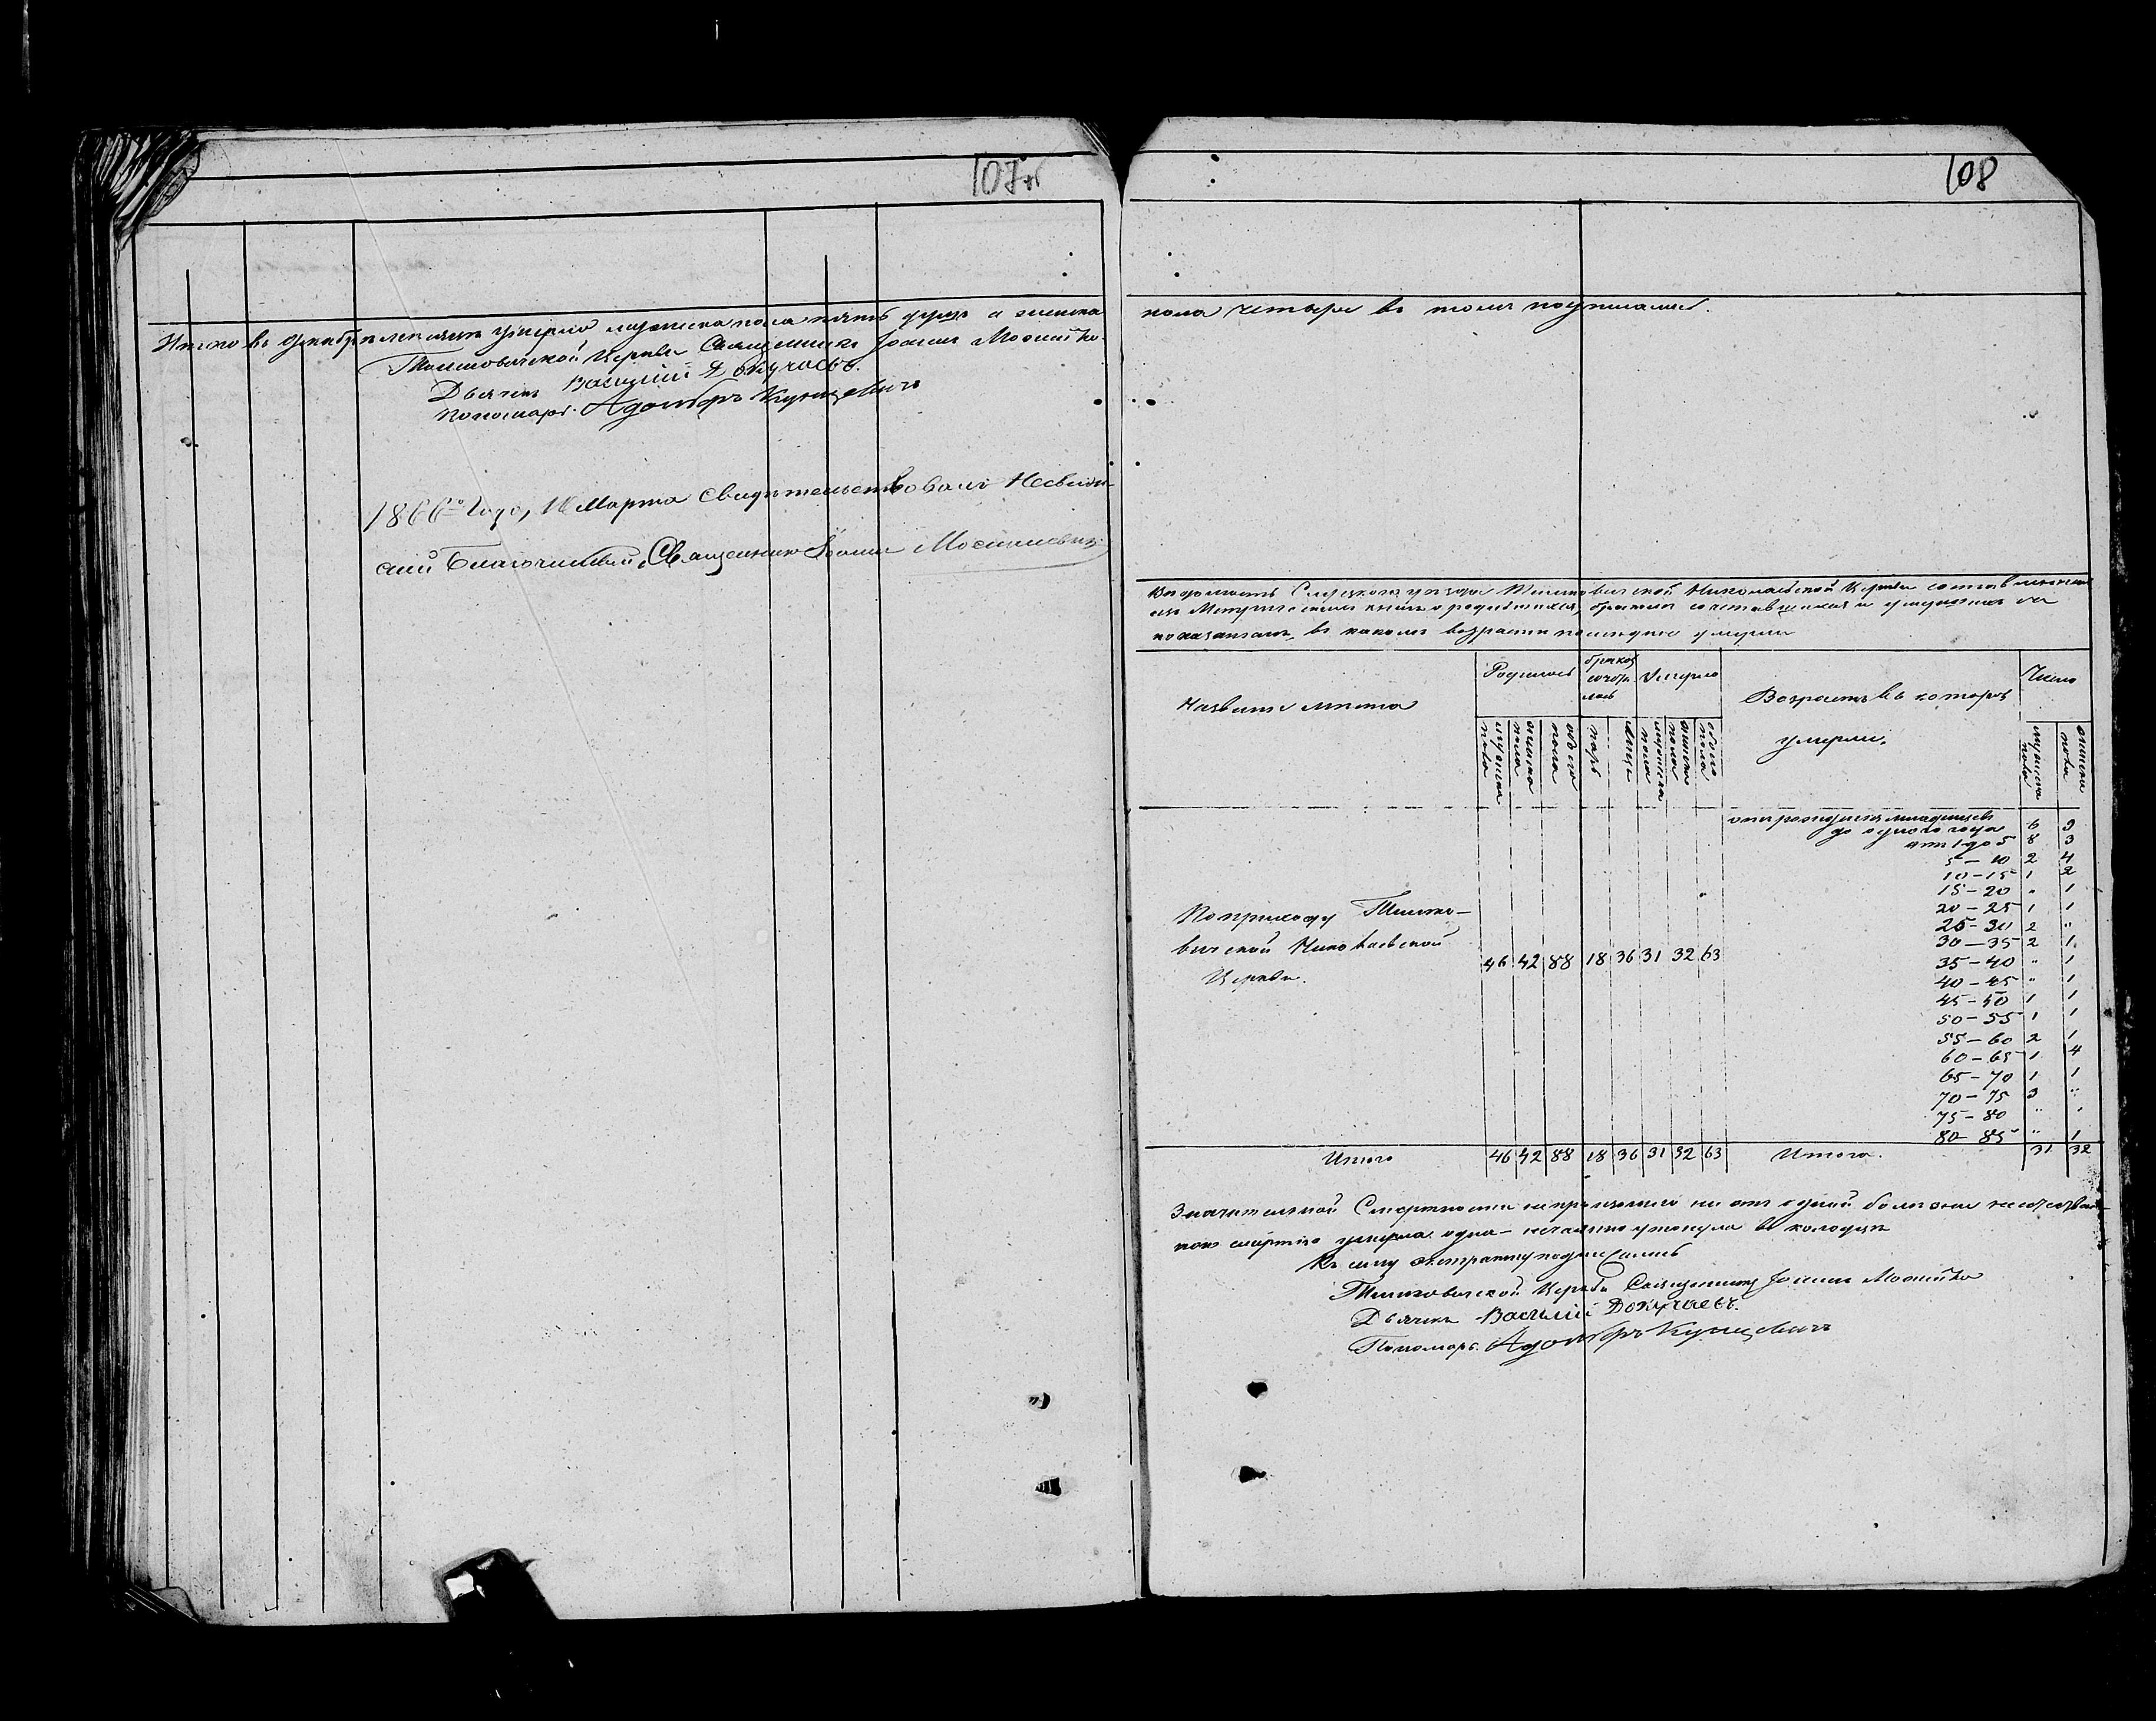 107об
Итого въ Декабрѣ мѣсяцѣ умерло мужеска пола пять душъ а женска
Тимковичской Церкви Священникъ Іоаннъ Мосийко
Дьячекъ Василій Докучаевъ.
Пономарь Адольфъ Кунцевичъ
1866го Года, Марта Свидѣтельствовалъ Несвиж
скій Благочинный, Священникъ Іоаннъ
108
пола четыре въ томъ подписались.
Вѣдомость Слуцкаго уѣзда Тимковичской Николаевской Церкви составленная
изъ Метрическихъ книгъ о родившихся, бракомъ сочетавшихся и умершихъ съ
показаніемъ, въ какомъ возрастѣ послѣдніе умерли
Названіе мѣста
Родилось
браковъ сочеталось
Умерло
Возрастъ въ которомъ
умерли.
Число
мужеска пола
женска пола
обоего пола
паръ
лицъ
мужеска пола
женска пола
обоего пола
мужеска пола
женска пола
отъ рожденія младенцевъ
до одного года 6 9
отъ 1 до 5 8 3
5 – 10 2 4
10 – 15 1 2
15 – 20 " 1
20 – 25 1 1
25 – 30 2 "
30 – 35 2 1
35 – 40 " 1
40 – 45 " 1
45 – 50 1 1
50 – 55 1 1
55 – 60 2 1
60 – 65 1 4
65 – 70 1 1
70 – 75 3 "
75 – 80 " 1
80 – 85 " 1
По приходу Тимко-
вичской Николаевской
Церкви.
46 42 88 18 36 31 32 63
Итого 46 42 88 18 36 31 32 63 Итого. 31 32
Значительной Смертности не произошло ни отъ одной болѣзни
смертію умерла одна – нечаянно утонула въ колодцѣ
Къ сему экстракту подписались
Тимковичской Церкви Священникъ Іоаннъ Мосийко
Дьячекъ Василій Докучаевъ.
Пономарь Адольфъ Кунцевичъ